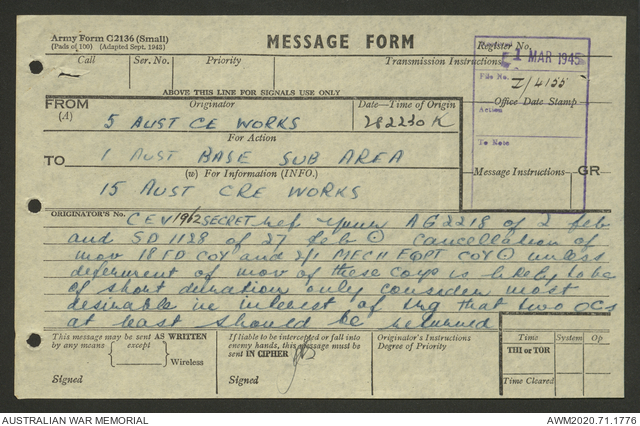 Army Form C2136 (Small)
(Pads of 100) (Adapted Sept. 1943)
MESSAGE FORM
Register No.
Call Ser. No. Priority Transmission Instructions
1 MAR 1945
File No. I/4155
ABOVE THIS LINE FOR SIGNALS USE ONLY
Action
Office Date Stamp
FROM Originator Date—Time of Origin
(A) 5 AUST CE WORKS 282230K
For Action
To Note
TO 1 AUST BASE SUB AREA
(w) For Information (INFO.)
Message Instructions GR
15 AUST CRE WORKS
ORIGINATOR'S No. CEV1962 SECRET ref your AG2218 of 2 feb
and SD1128 of 27 feb ⊙ cancellation of
mov 18 FD COY and 2/1 MECH EQPT COY ⊙ unless
deferment of mov of these coys is likely to be
of short duration only consider most
desirable in interest of trg that two OCs
at least should be returned
This message may be sent AS WRITTEN
by any means except
Wireless
Signed
If liable to be intercepted or fall into
enemy hands, this message must be
sent IN CIPHER
Signed
Originator's Instructions
Degree of Priority
Time System Op
THI or TOR
Time Cleared
AUSTRALIAN WAR MEMORIAL
AWM2020.71.1776